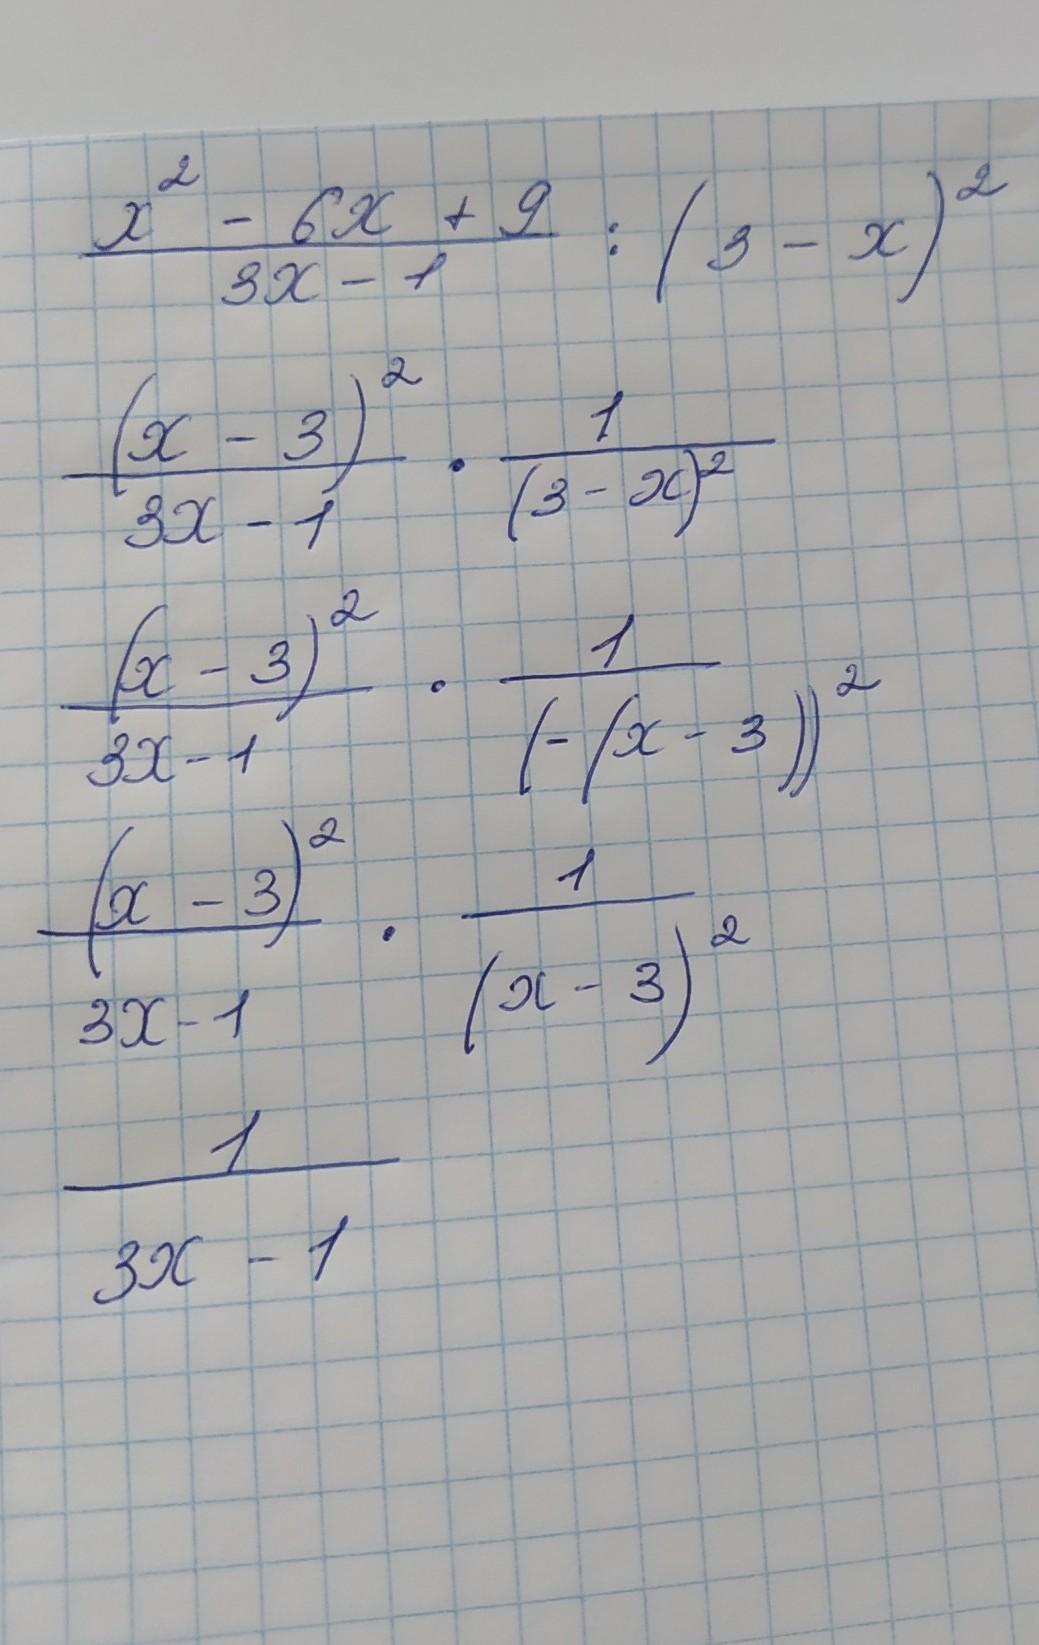 \frac{x^2 - 6x + 9}{3x - 1} : (3 - x)^2
\frac{(x - 3)^2}{3x - 1} \cdot \frac{1}{(3 - x)^2}
\frac{(x - 3)^2}{3x - 1} \cdot \frac{1}{(-(x - 3))^2}
\frac{(x - 3)^2}{3x - 1} \cdot \frac{1}{(x - 3)^2}
\frac{1}{3x - 1}